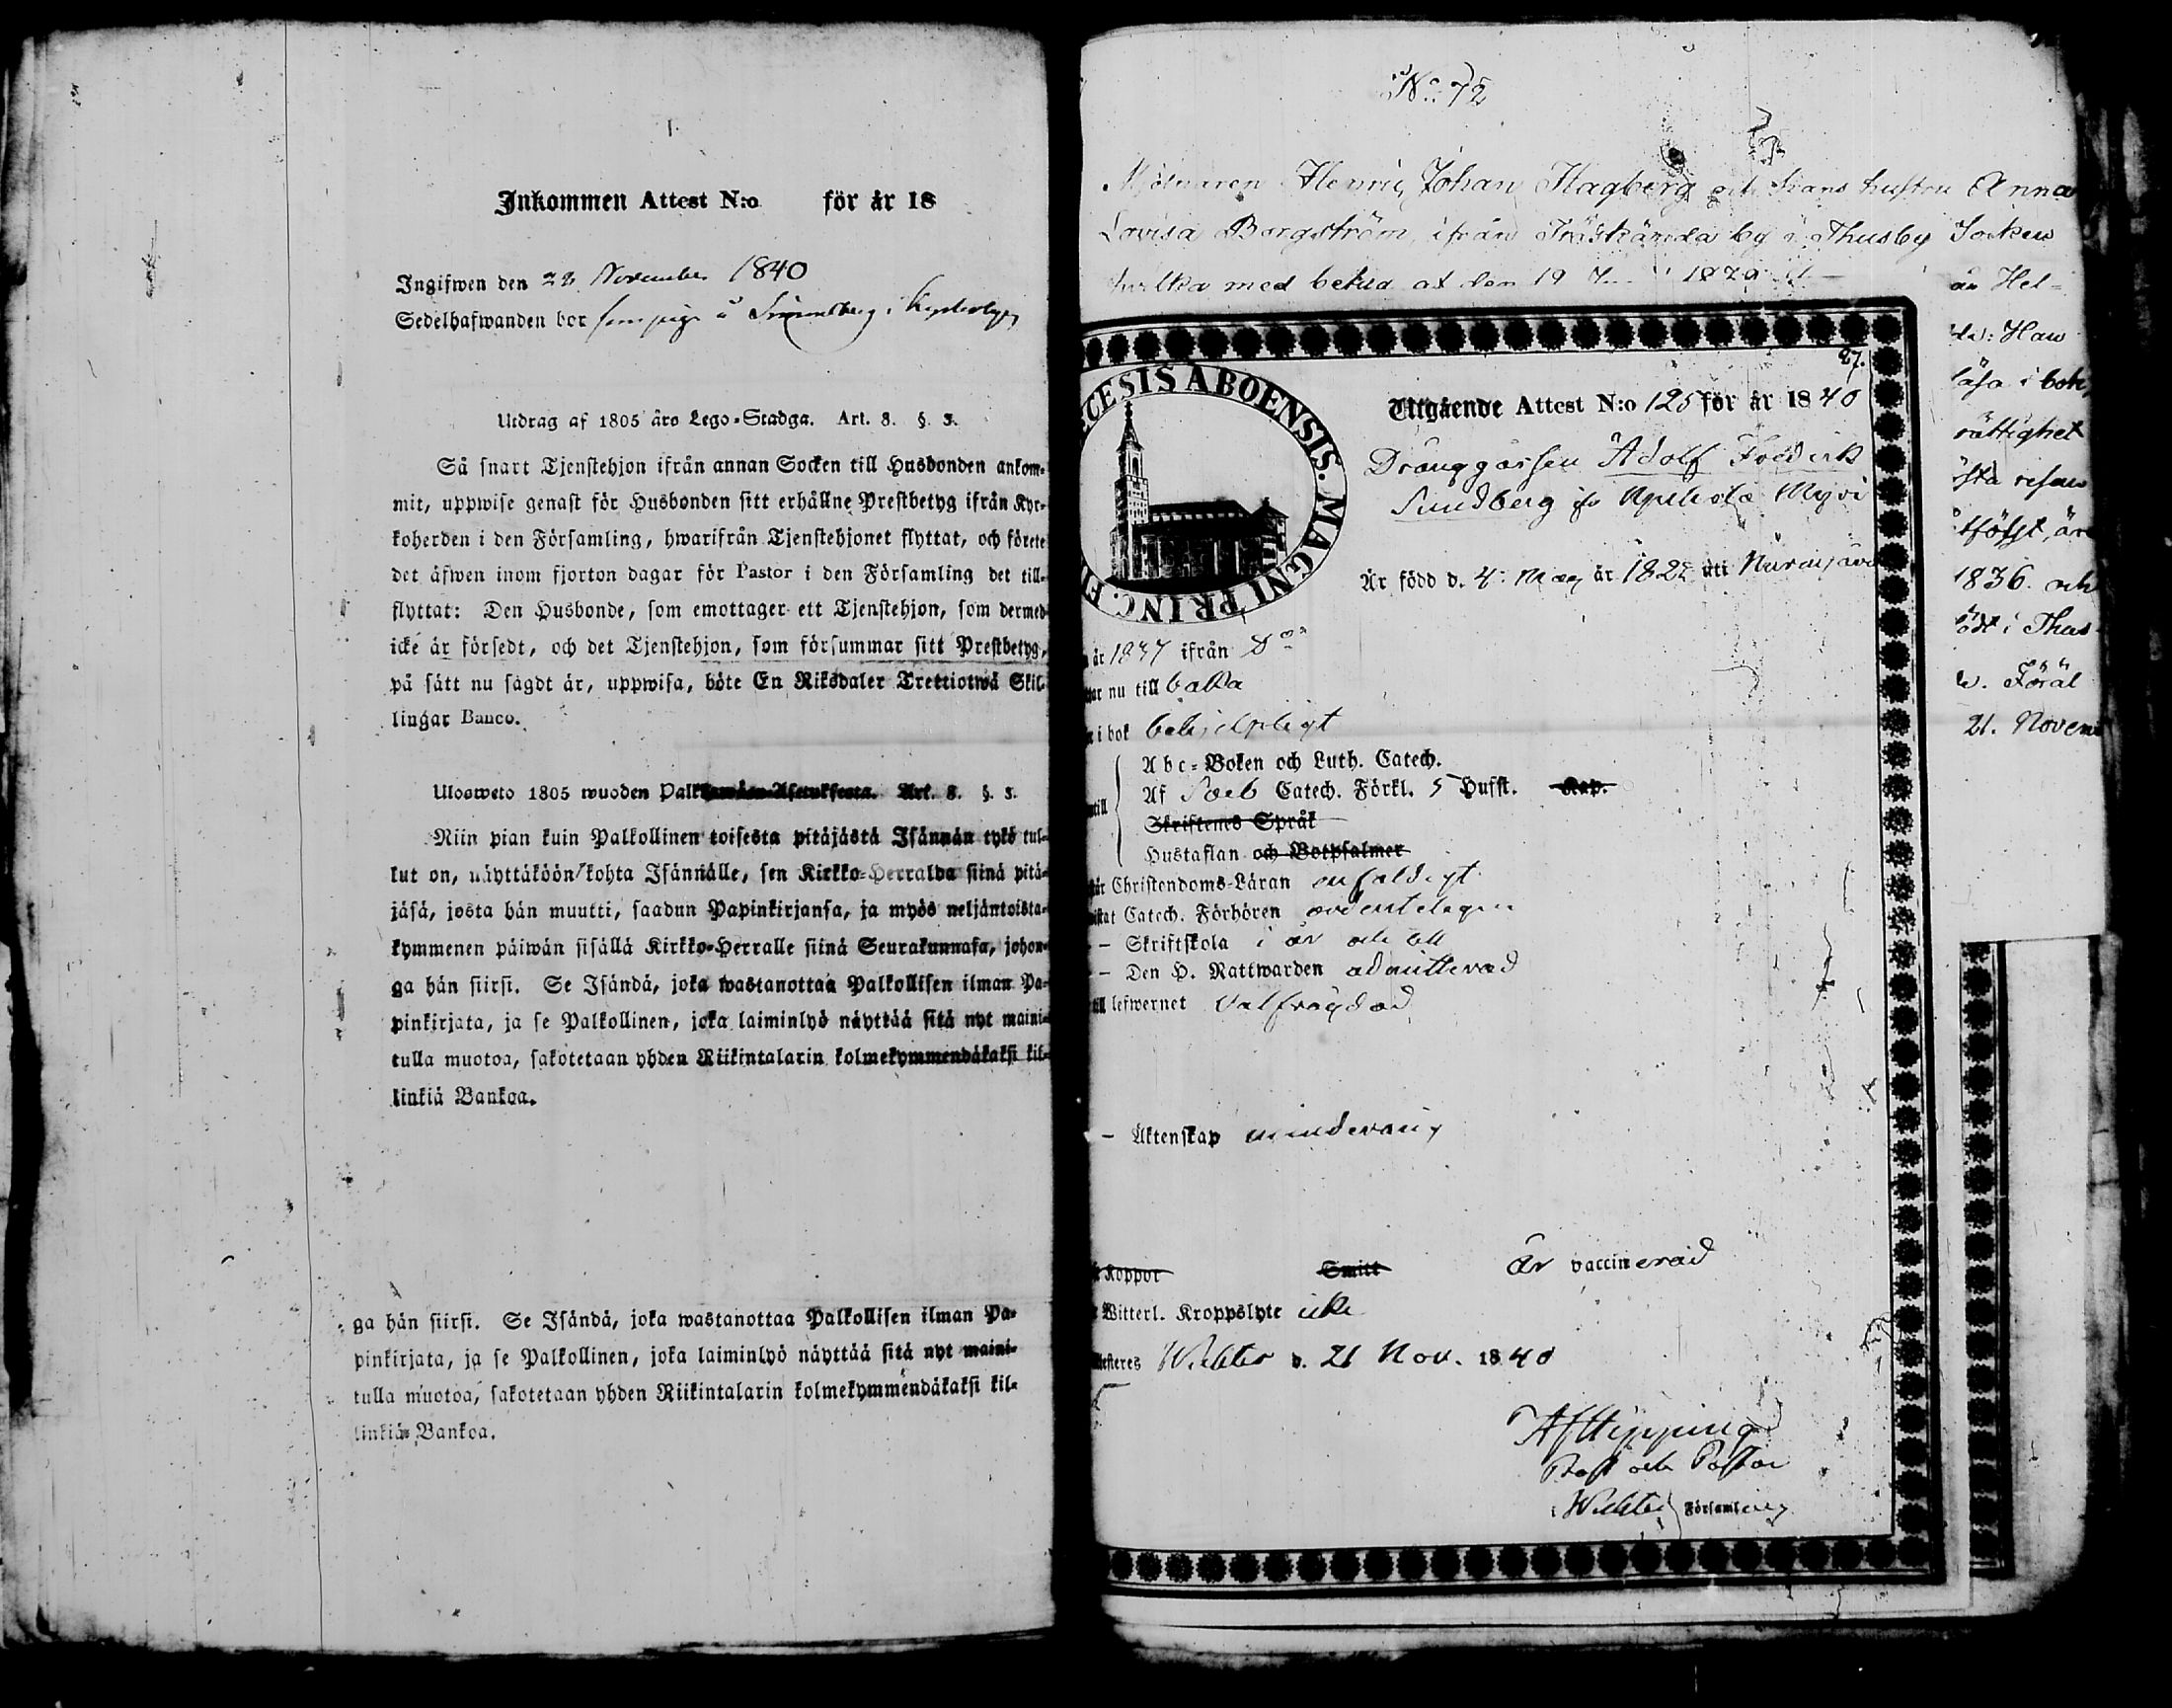 Inkommen Attest N:o för år 18
Ingifwen den 22 November 1840
Sedelhafwanden bor som piga å
Utdrag af 1805 års Lego-Stadga. Art. 8. §. 3.
Så snart Tjenstehjon ifrån annan Socken till Husbonden ankom-
mit, uppwise genast för Husbonden sitt erhållne Prestbetyg ifrån Kyr-
koherden i den Församling, hwarifrån Tjenstehjonet flyttat, och förete
det äfwen inom fjorton dagar för Pastor i den Församling det till-
flyttat: Den Husbonde, som emottager ett Tjenstehjon, som dermed
icke är försedt, och det Tjenstehjon, som försummar sitt Prestbetyg,
på sätt nu sagdt är, uppwisa, böte En Riksdaler Trettiotwå Skil-
lingar Banco.
Ulosweto 1805 wuoden Palkkawäen-Asetuksesta. Art. 8. §. 3.
Niin pian kuin Palkollinen toisesta pitäjästä Isännän tykö tul-
lut on, näyttäköön kohta Isännälle, sen Kirkko-Herralda siinä pitä-
jäsä, josta hän muutti, saadun Papinkirjansa, ja myös neljäntoista-
kymmenen päiwän sisällä Kirkko-Herralle siinä Seurakunnasa, johon-
ga hän siirsi. Se Isändä, joka wastanottaa Palkollisen ilman Pa-
pinkirjata, ja se Palkollinen, joka laiminlyö näyttää sitä nyt maini-
tulla muotoa, sakotetaan yhden Riikintalarin kolmekymmendäkaksi kil-
linkiä Bankoa.
ga hän siirsi. Se Isändä, joka wastanottaa Palkollisen ilman Pa-
pinkirjata, ja se Palkollinen, joka laiminlyö näyttää sitä nyt maini-
tulla muotoa, sakotetaan yhden Riikintalarin kolmekymmendäkaksi kil-
linkiä Bankoa.
No: 72
Mjölnaren Henric Johan Hagberg och hans hustru Anna
Lovisa Borgström, ifrån Träskända by i Thusby Socken
hvilka med betyg at den 19 1829
än Hel-
Han
läsa i bok
rättighet
sta resan
1836. och
ödt i Thus-
w. Föräl
21. Novem
27.
CESIS ABOENSIS. MAGNI PRINC. F
Utgående Attest N:o 125 för år 1840
Dränggossen Adolf Fredrik
Sundberg fr
Är född d. 4 Maj år 182 uti Nurmijärvi
år 1837 ifrån Do
nu till
i bok behjelpligt
Abc-Boken och Luth. Catech.
Af Catech. Förkl. 5 Hufst. Kap.
Skriftenes Språk
Hustaflan och Botpsalmer
Christendoms-Läran enfaldigt
Catech. Förhören ordenteligen
- Skriftskola i år och till
- Den H. Nattwarden admitterad
till lefwernet välfrägdad
- Äktenskap minderårig
Koppor Smitt är vaccinerad
Witterl. Kroppslyte icke
Wichtis d. 21 Nov. 1840
Prost och Pastor
i Wichtis Församling